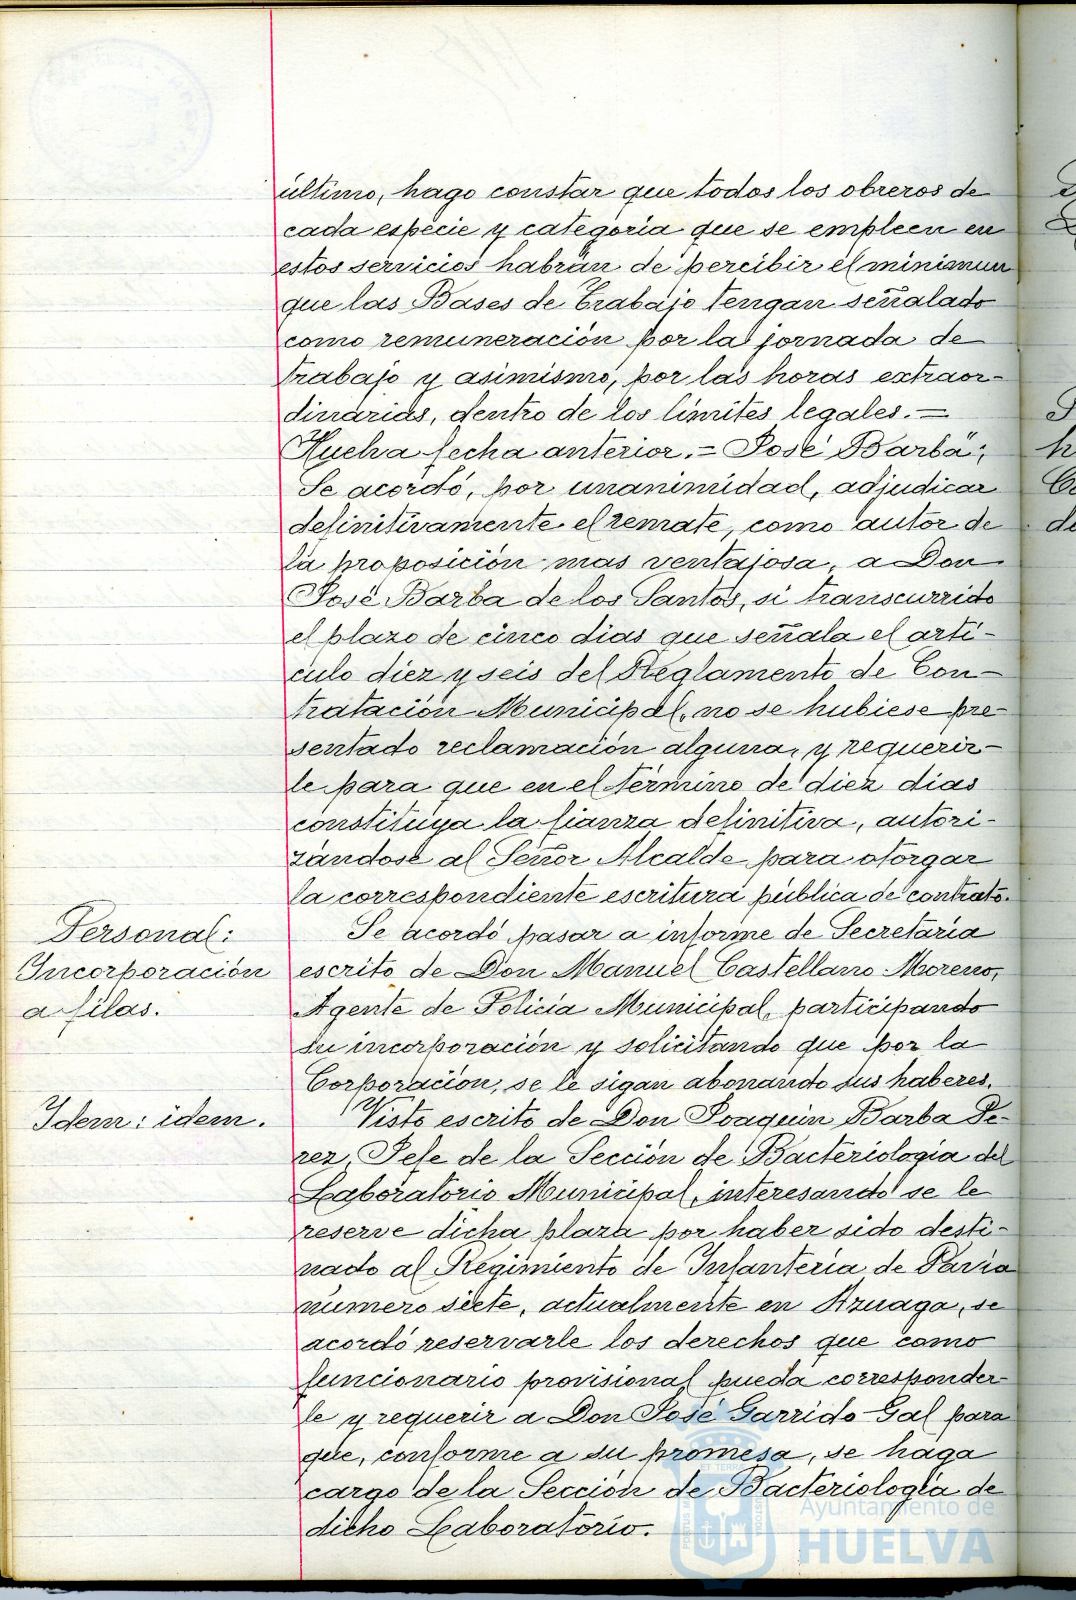 último, hago constar que todos los obreros de
cada especie y categoria que se empleen en
estos servicios habrán de percibir el minimun
que las Bases de Trabajo tengan señalado
como remuneración por la jornada de
trabajo y asimismo, por las horas extraor-
dinarias, dentro de los limites legales. =
Huelva fecha anterior. = José Barba";
Se acordó, por unanimidad, adjudicar
definitivamente el remate, como autor de
la proposición mas ventajosa, a Don
José Barba de los Santos, si transcurrido
el plazo de cinco dias que señala el arti-
culo diez y seis del Reglamento de Con-
tratación Municipal, no se hubiese pre-
sentado reclamación alguna, y requerir-
le para que en el término de diez dias
constituya la fianza definitiva, autori-
zándose al Señor Alcalde para otorgar
la correspondiente escritura pública de contrato.
Personal:
Incorporación
a filas.
Se acordó pasar a informe de Secretaria
escrito de Don Manuel Castellano Moreno,
Agente de Policia Municipal, participando
su incorporación y solicitando que por la
Corporación, se le sigan abonando sus haberes.
Idem: idem.
Visto escrito de Don Joaquin Barba Pe-
rez, Jefe de la Sección de Bacteriologia del
Laboratorio Municipal, interesando se le
reserve dicha plaza por haber sido desti-
nado al Regimiento de Infanteria de Pavia
número siete, actualmente en Azuaga, se
acordó reservarle los derechos que como
funcionario provisional pueda corresponder-
le y requerir a Don José Garrido Gal para
que, conforme a su promesa, se haga
cargo de la Sección de Bacteriologia de
dicho Laboratorio.
Ayuntamiento de
HUELVA